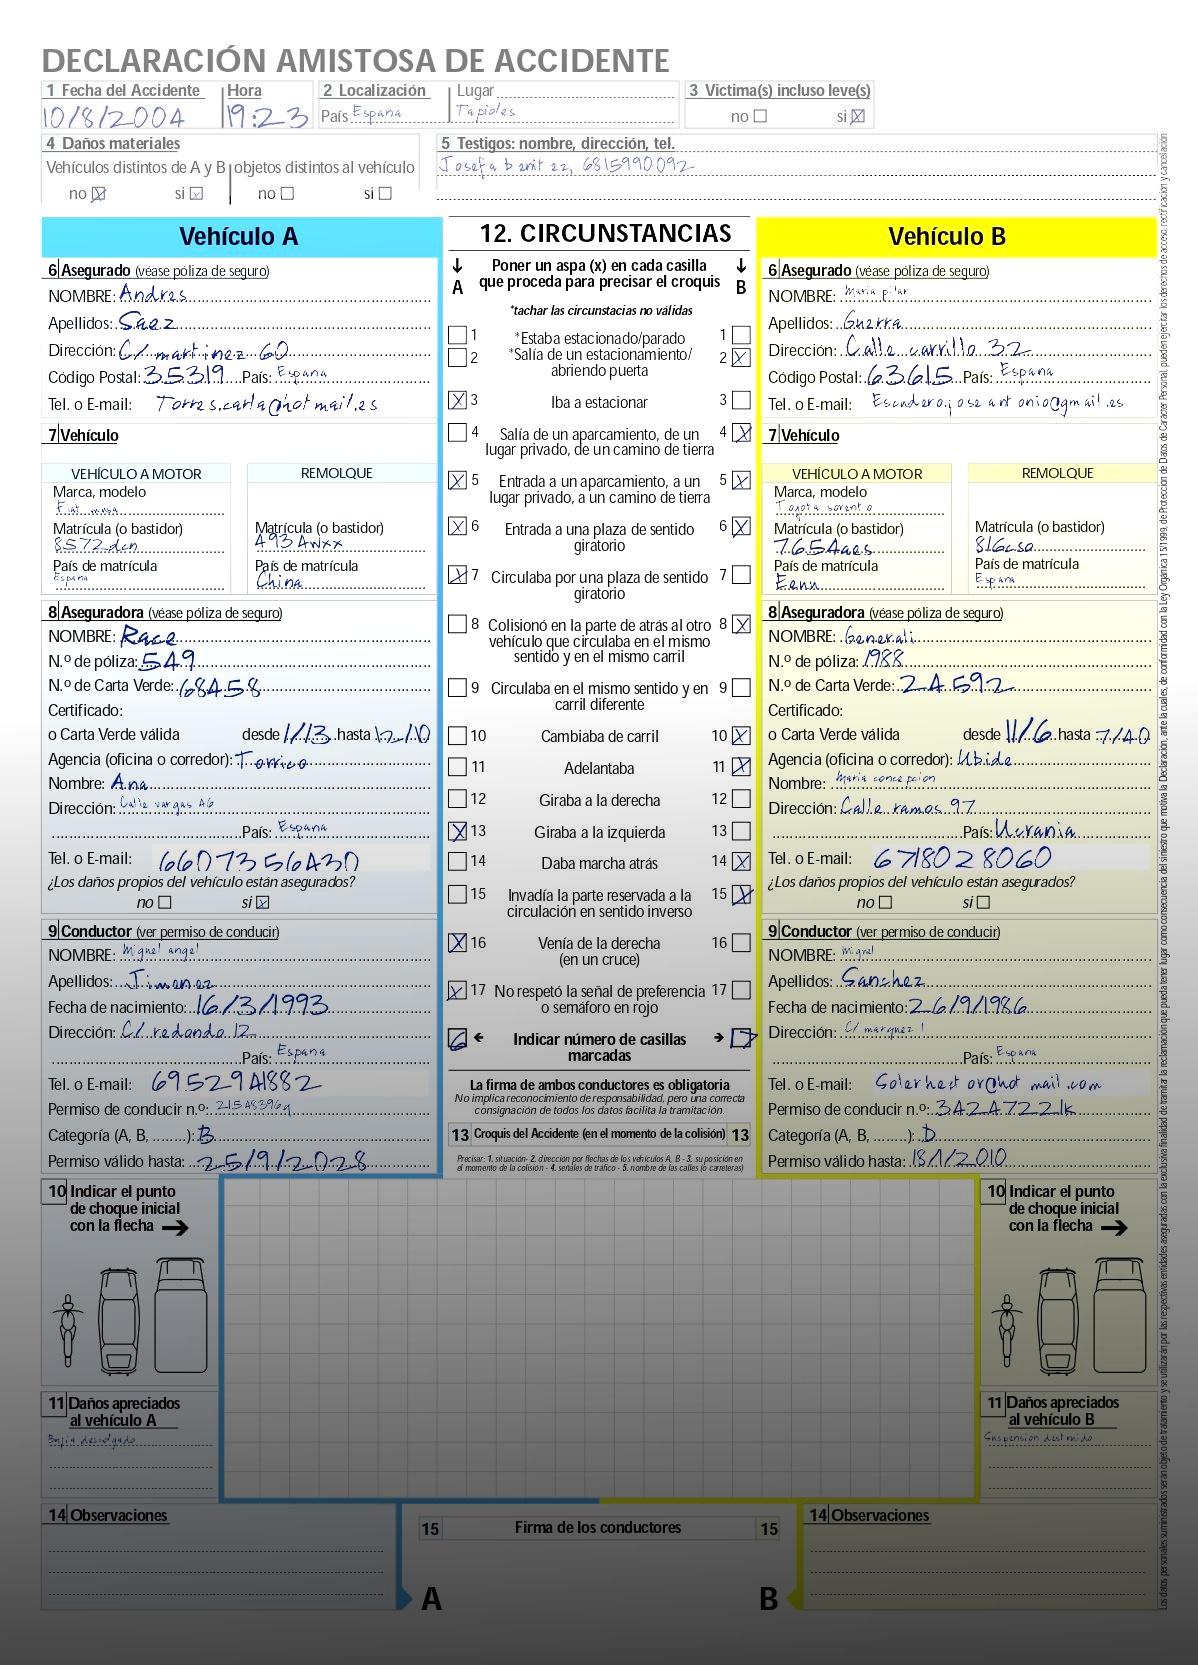 DECLARACIÓN AMISTOSA DE ACCIDENTE
1 Fecha del Accidente Hora 2 Localización Lugar 3 Victima(s) incluso leve(s)
10/8/2004 19:23 País España Tapioles no si X
4 Daños materiales 5 Testigos: nombre, dirección, tel.
Vehículos distintos de A y B objetos distintos al vehículo Josefa benitez, 6815990092
no X si X no si
Vehículo A
6 Asegurado (véase póliza de seguro)
NOMBRE: Andres
Apellidos: Saez
Dirección: C/ martinez 60
Código Postal: 35319 País: España
Tel. o E-mail: Torres.carla@hotmail.es
7 Vehículo
VEHÍCULO A MOTOR REMOLQUE
Marca, modelo
Fiat
Matrícula (o bastidor) Matrícula (o bastidor)
8572dcn 493Awxx
País de matrícula País de matrícula
España China
8 Aseguradora (véase póliza de seguro)
NOMBRE: Race
N.º de póliza: 549
N.º de Carta Verde: 68458
Certificado:
o Carta Verde válida desde 1/13 hasta 12/10
Agencia (oficina o corredor): Torrico
Nombre: Ana
Dirección: Calle vargas 46
País: España
Tel. o E-mail: 6607356430
¿Los daños propios del vehículo están asegurados?
no si X
9 Conductor (ver permiso de conducir)
NOMBRE: Miguel angel
Apellidos: Jimenez
Fecha de nacimiento: 16/3/1993
Dirección: C/ redondo 12
País: España
Tel. o E-mail: 6952941882
Permiso de conducir n.º:
Categoría (A, B, ........): B
Permiso válido hasta: 25/9/2028
10 Indicar el punto
de choque inicial
con la flecha
11 Daños apreciados
al vehículo A
Bujia descolgado
14 Observaciones
12. CIRCUNSTANCIAS
A Poner un aspa (x) en cada casilla que proceda para precisar el croquis B
*tachar las circunstacias no válidas
1 *Estaba estacionado/parado 1
2 *Salía de un estacionamiento/ 2 X
abriendo puerta
X 3 Iba a estacionar 3
4 Salía de un aparcamiento, de un 4 X
lugar privado, de un camino de tierra
X 5 Entrada a un aparcamiento, a un 5 X
lugar privado, a un camino de tierra
X 6 Entrada a una plaza de sentido 6 X
giratorio
X 7 Circulaba por una plaza de sentido 7
giratorio
8 Colisionó en la parte de atrás al otro 8 X
vehículo que circulaba en el mismo
sentido y en el mismo carril
9 Circulaba en el mismo sentido y en 9
carril diferente
10 Cambiaba de carril 10 X
11 Adelantaba 11 X
12 Giraba a la derecha 12
X 13 Giraba a la izquierda 13
14 Daba marcha atrás 14 X
15 Invadía la parte reservada a la 15 X
circulación en sentido inverso
X 16 Venía de la derecha 16
(en un cruce)
X 17 No respetó la señal de preferencia 17
o semáforo en rojo
6 Indicar número de casillas 7
marcadas
La firma de ambos conductores es obligatoria
No implica reconocimiento de responsabilidad, pero una correcta
consignación de todos los datos facilita la tramitación.
13 Croquis del Accidente (en el momento de la colisión) 13
Precisar: 1. situación- 2. dirección por flechas de los vehículos A, B - 3. su posición en
el momento de la colisión - 4. señales de tráfico - 5. nombre de las calles (o carreteras)
15 Firma de los conductores 15
A B
Vehículo B
6 Asegurado (véase póliza de seguro)
NOMBRE: Maria pilar
Apellidos: Guerra
Dirección: Calle carrillo 32
Código Postal: 63615 País: España
Tel. o E-mail: Escudero.joseantonio@gmail.es
7 Vehículo
VEHÍCULO A MOTOR REMOLQUE
Marca, modelo
Toyota sorento
Matrícula (o bastidor) Matrícula (o bastidor)
7654aes 816cso
País de matrícula País de matrícula
Eenu España
8 Aseguradora (véase póliza de seguro)
NOMBRE: Generali
N.º de póliza: 1988
N.º de Carta Verde: 24592
Certificado:
o Carta Verde válida desde 11/6 hasta 7/40
Agencia (oficina o corredor): Ubide
Nombre: Maria concepcion
Dirección: Calle ramos 97
País: Ucrania
Tel. o E-mail: 6718028060
¿Los daños propios del vehículo están asegurados?
no si
9 Conductor (ver permiso de conducir)
NOMBRE: Miguel
Apellidos: Sanchez
Fecha de nacimiento: 26/9/1986
Dirección: C/ marquez 1
País: España
Tel. o E-mail: Solerhector@hotmail.com
Permiso de conducir n.º: 34247221k
Categoría (A, B, ........): D
Permiso válido hasta: 18/1/2010
10 Indicar el punto
de choque inicial
con la flecha
11 Daños apreciados
al vehículo B
Suspension destruido
14 Observaciones